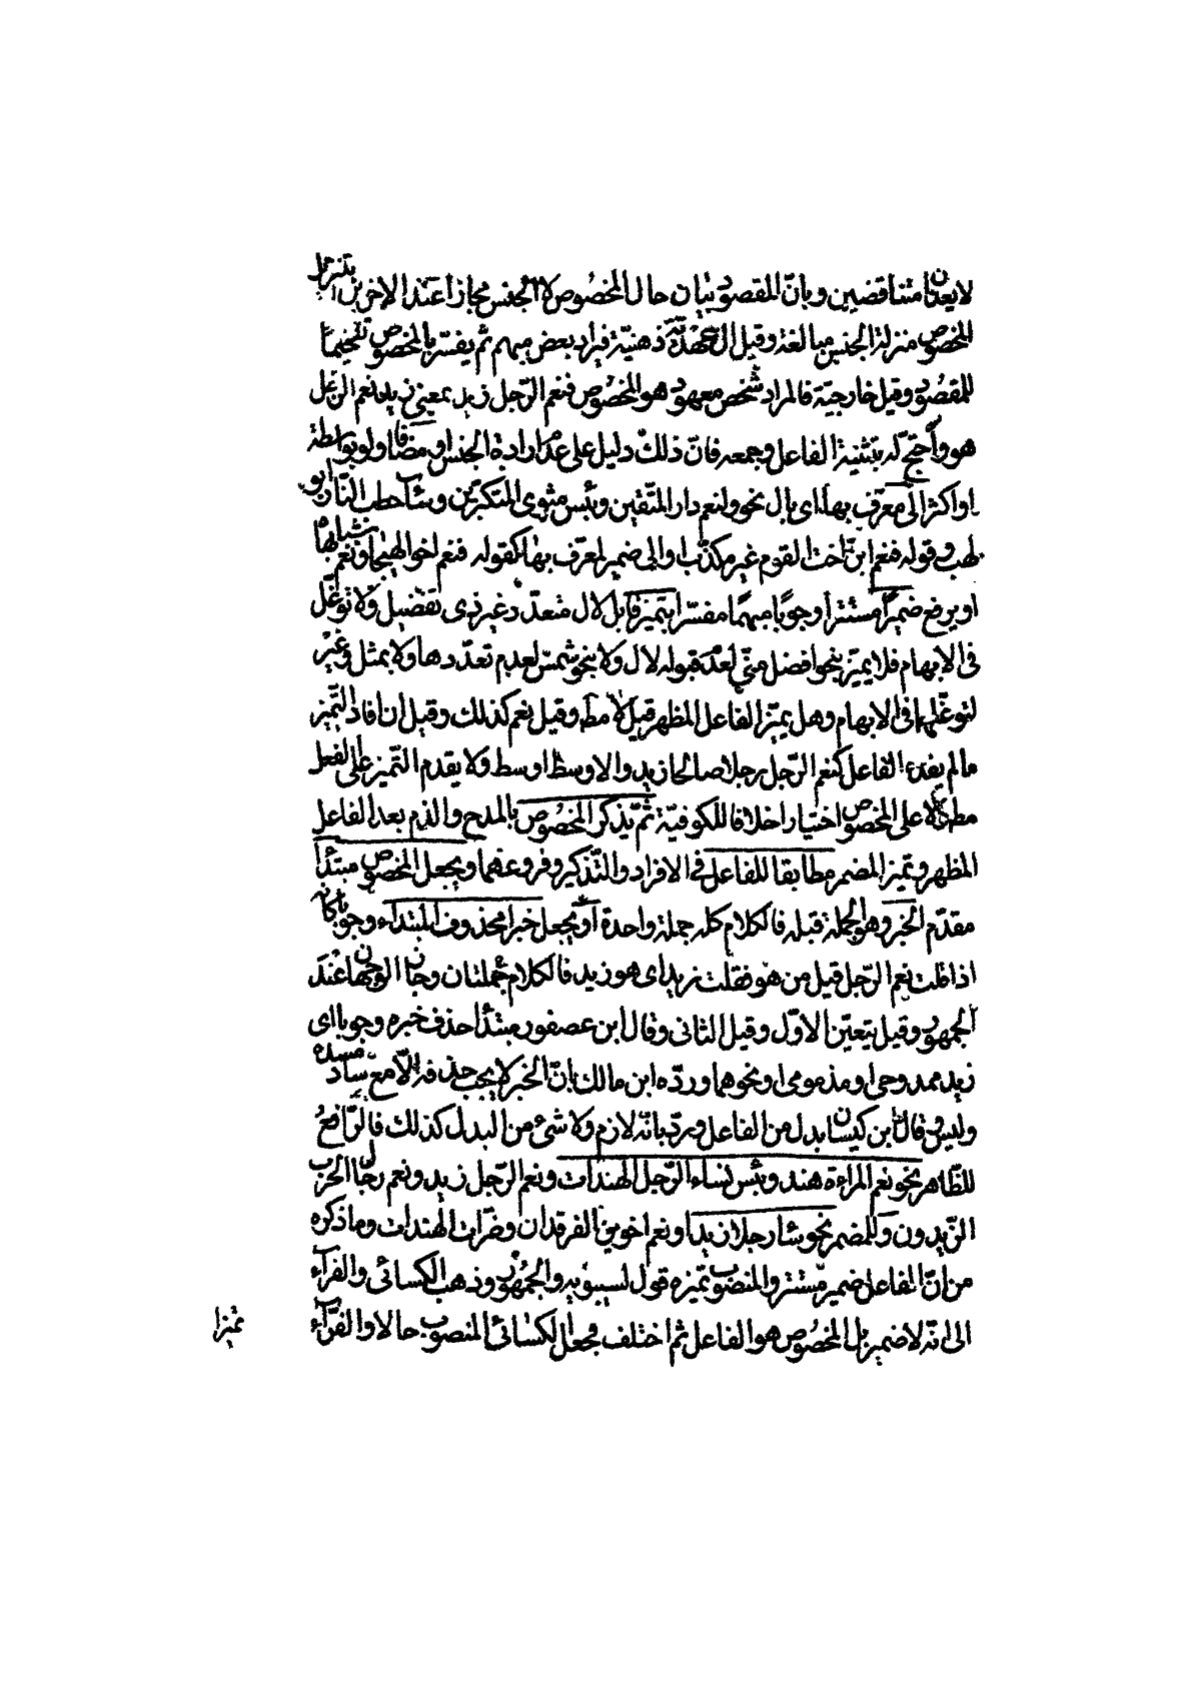 لا يعدان متناقضين وبانّ المقصود بيان حال المخصوص لا الجنس مجازا عند الاخرين بتنزيل
المخصوص منزلة الجنس مبالغة وقيل ال عهديّة ذهنيّة فيراد بعض مبهم ثم يفسّر بالمخصوص تفخيمًا
للمقصود وقيل خارجيّة فالمراد شخص معهود هو المخصوص فنعم الرّجل زيد بمعنى زيد نعم الرّجل
هو واحتجّ له بتثنية الفاعل وجمعه فانّ ذلك دليل على عدم ارادة الجنس او مضافا ولو بواسطة
او اكثر الى معرّف بها اى بال نحو ولنعم دار المتّقين وبئس مثوى المتكبّرين وشأ حطب النّار ابو
لهب وقوله فنعم ابن اخت القوم غير مكذّب او الى ضمير لمعرّف بها كقوله فنعم اخو الهيجا ونعم شبابها
او يرفع ضميرًا مستترا وجوبًا مبهمًا مفسّرا بتميز قابل لال متعدّد غير ذى تفضيل ولا توغّل
فى الابهام فلا يميّز بنحو افضل منّى لعدم قبوله لال ولا بنحو شمس لعدم تعدّدها ولا بمثل وغير
لتوغّلهما فى الابهام وهل يميّز الفاعل المظهر قيل لا مط وقيل نعم كذلك وقيل ان افاد التّميز
ما لم يفده الفاعل كنعم الرّجل رجلا صالحا زيد والا وسط اوسط ولا يقدم التّميز على الفعل
مط ولا على المخصوص اختيارا خلافا للكوفيّة ثمّ يذكر المخصوص بالمدح والذم بعد الفاعل
المظهر وتميز المضمر مطابقا للفاعل فى الافراد والتّذكير وفروعهما ويجعل المخصوص مبتدأ
مقدّم الخبر وهو الجملة قبله فالكلام كله جملة واحدة او يجعل خبرا محذوف المبتداء وجوبا كانه
اذا قلت نعم الرّجل قيل من هو فقلت زيد اى هو زيد فالكلام جملتان وجاز الوجهان عند
الجمهور وقيل يتعيّن الاوّل وقيل الثانى وقال ابن عصفور مبتدأ حذف خبره وجوبا اى
زيد ممدوحى او مذمومى او نحوهما وردّه ابن مالك بانّ الخبر لا يجب حذفه الّا مع سادّ مسده
وليس وقال ابن كيسان بدل من الفاعل ويردّ بانّه لازم ولا شئ من البدل كذلك فالرّافع
للظّاهر نحو نعم المراءة هند وبئس نساء الرّجل الهندات ونعم الرّجل زيد ونعم رجال الحرب
الزّيدون وللمضمر نحو شا رجلا زيد او نعم اخوين الفرقدان وضرّات الهندات وما ذكره
من انّ الفاعل ضمير مستتر والمنصوب تميزه قول لسيبويه والجمهور وذهب الكسائى والفرآء
الى انّه لا ضمير بل المخصوص هو الفاعل ثم اختلف فجعل الكسائى المنصوب حالا والفرّآء
تميزا